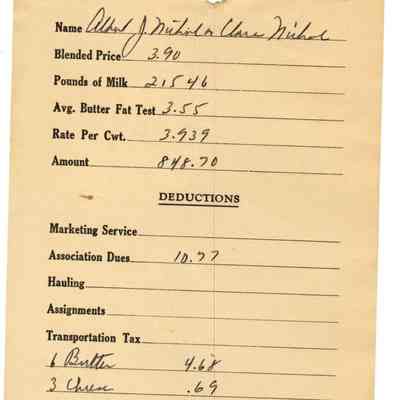 Name Albert J Nichol or Clara Nichol
Blended Price 3.90
Pounds of Milk 21546
Avg. Butter Fat Test 3.55
Rate Per Cwt. 3.939
Amount 848.70
DEDUCTIONS
Marketing Service
Association Dues 10.77
Hauling
Assignments
Transportation Tax
6 Butter 4.68
3 Cheese .69